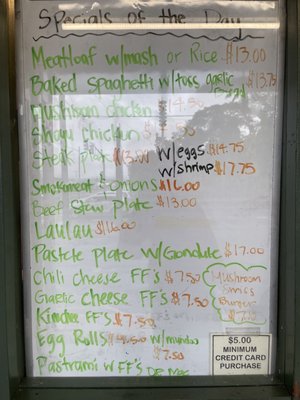 Specials of the Day
Meatloaf w/mash or Rice $13.00
Baked spaghetti w/toss garlic Bread $13.75
Mushroom chicken $14.50
Shoyu chicken
Steak plate $13.00 w/eggs $14.75
w/shrimp $17.75
Smokemeat & onions $16.00
Beef Stew Plate $13.00
Laulau $16.00
Pastele Plate w/Gandule $17.00
Chili cheese FF's $7.50
Garlic Cheese FF's $7.50
Mushroom
Swiss
Burger
Kimchee FF's $7.50
Egg Rolls w/mundoo
$7.50
Pastrami w/FF's or Mac
$5.00
MINIMUM
CREDIT CARD
PURCHASE